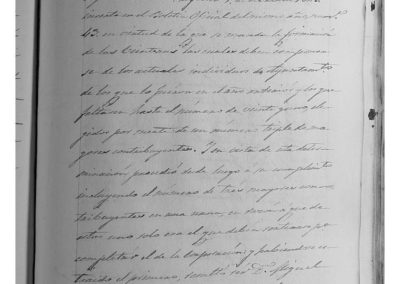 inserta en el Boletin Oficial del mismo año, num.º
43. en virtud de la que se manda la formacion
de las Veintenas las cuales deben componer
se de los actuales individuos de Ayuntamto
de los que lo fueron en el año anterior y los que
faltaren hasta el número de veinte seran ele
gidos por suerte de un número triple de ma
yores contribuyentes. Y en vista de esta deter
minacion procedió desde luego a su cumplimto
incluyendo el número de tres mayores con
tribuyentes en una urna, en razon a que de
estos uno solo era el que debia sortearse pa
completar el de la Corporacion y habiendose es
traido el primero, resultó ser D. Miguel